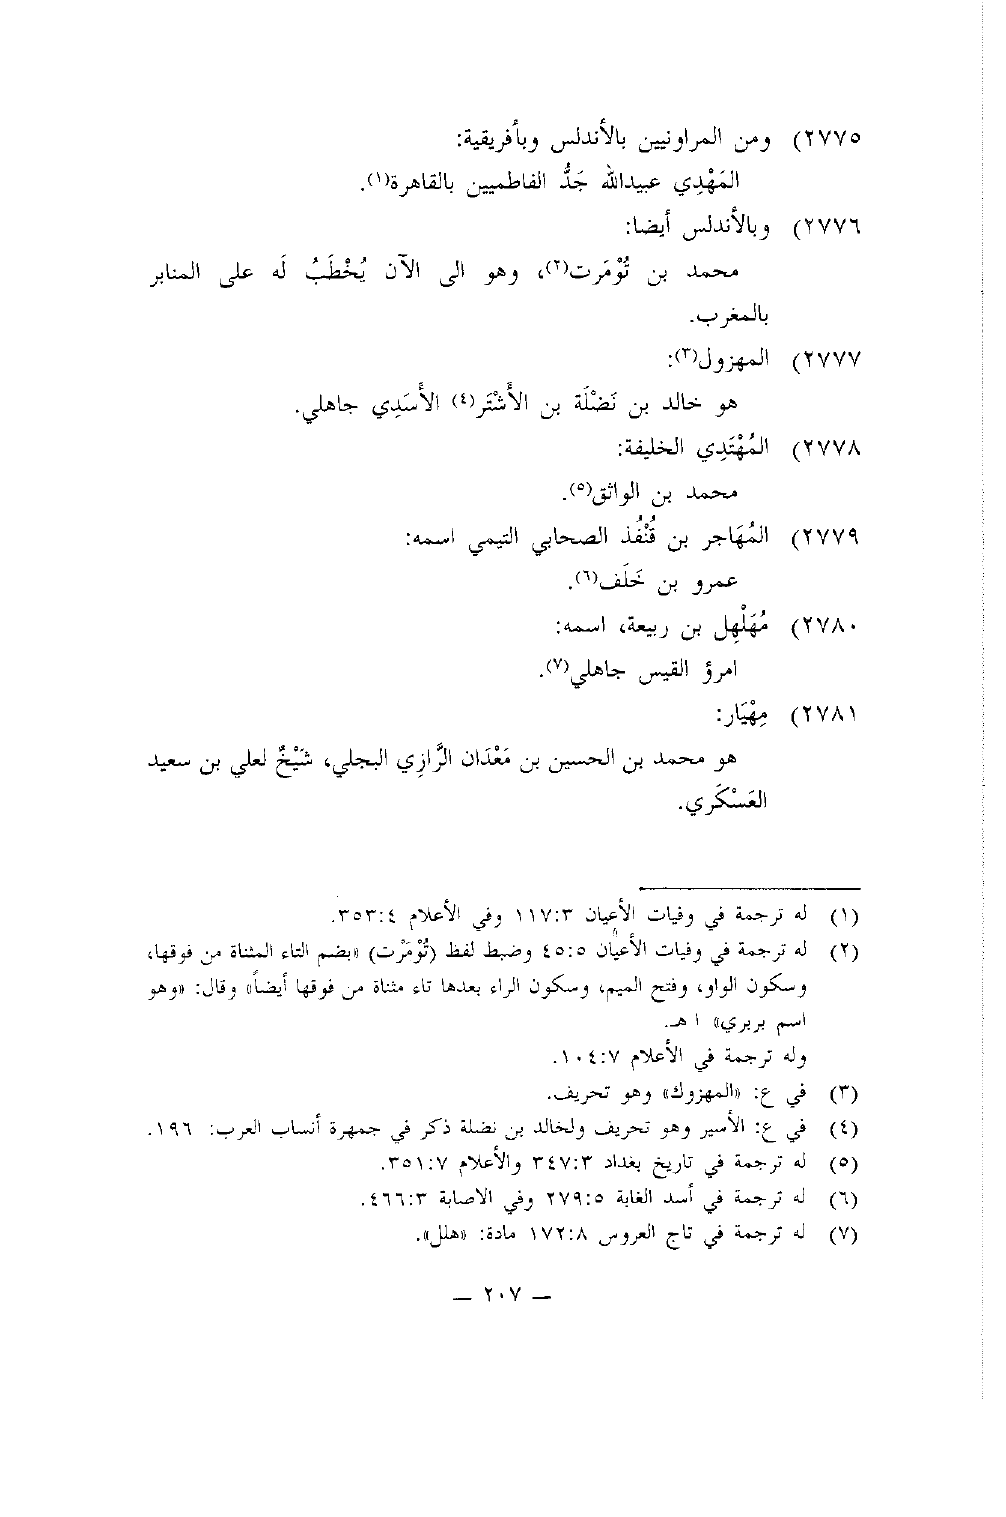 ٢٧٧٥) ومن المراونيين بالأندلس وبأفريقية:
المَهْدِي عبيدالله جَدُّ الفاطميين بالقاهرة(١).
٢٧٧٦) وبالأندلس أيضا:
محمد بن تُوْمَرت(٢)، وهو الى الآن يُخْطَبُ لَه على المنابر
بالمغرب.
٢٧٧٧) المهزول(٣):
هو خالد بن نَضْلَة بن الأَشْتَر(٤) الأَسَدِي جاهلي.
٢٧٧٨) المُهْتَدِي الخليفة:
محمد بن الواثق(٥).
٢٧٧٩) المُهَاجر بن قُنْفُذ الصحابي التيمي اسمه:
عمرو بن خَلَف(٦).
٢٧٨٠) مُهَلْهِل بن ربيعة، اسمه:
امرؤ القيس جاهلي(٧).
٢٧٨١) مِهْيَار:
هو محمد بن الحسين بن مَعْدَان الرَّازِي البجلي، شَيْخٌ لعلي بن سعيد
العَسْكَري.
(١) له ترجمة في وفيات الأعيان ١١٧:٣ وفي الأعلام ٣٥٣:٤.
(٢) له ترجمة في وفيات الأعيان ٤٥:٥ وضبط لفظ (تُوْمَرْت) «بضم التاء المثناة من فوقها،
وسكون الواو، وفتح الميم، وسكون الراء بعدها تاء مثناة من فوقها أيضاً» وقال: «وهو
اسم بربري» ا هـ.
وله ترجمة في الأعلام ١٠٤:٧.
(٣) في ع: «المهزوك» وهو تحريف.
(٤) في ع: الأسير وهو تحريف ولخالد بن نضلة ذكر في جمهرة أنساب العرب: ١٩٦.
(٥) له ترجمة في تاريخ بغداد ٣٤٧:٣ والأعلام ٣٥١:٧.
(٦) له ترجمة في أسد الغابة ٢٧٩:٥ وفي الاصابة ٤٦٦:٣.
(٧) له ترجمة في تاج العروس ١٧٢:٨ مادة: «هلل».
— ٢٠٧ —